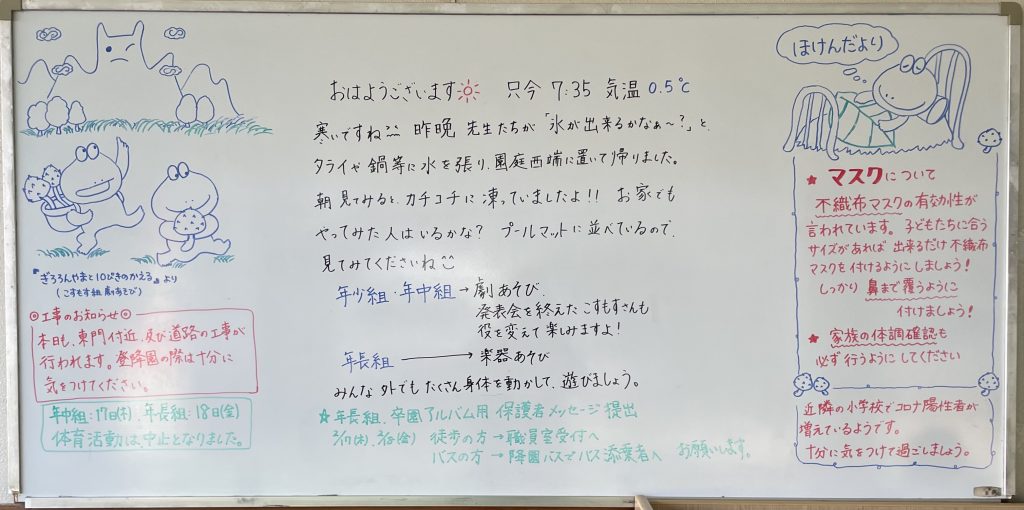 おはようございます 只今 7:35 気温 0.5℃
寒いですね 昨晩 先生たちが「氷が出来るかなぁ〜?」と、
タライや鍋等に水を張り、園庭西端に置いて帰りました。
朝見てみると、カチコチに凍っていましたよ!! お家でも
やってみた人はいるかな? プールマットに並べているので、
見てみてくださいね
年少組・年中組→劇あそび、
発表会を終えたこすもすさんも
役を変えて楽しみますよ!
年長組→楽器あそび
みんな外でもたくさん身体を動かして、遊びましょう。
★年長組、卒園アルバム用 保護者メッセージ提出
2/17(木)、2/18(金) 徒歩の方→職員室受付へ
バスの方→降園バスでバス添乗者へ お願いします。
『ぎろろんやまと10ぴきのかえる』より
(こすもす組 劇あそび)
◎工事のお知らせ◎
本日も、東門付近、及び道路の工事が
行われます。登降園の際は十分に
気をつけてください。
年中組:17日(木)、年長組:18日(金)
体育活動は、中止となりました。
ほけんだより
★マスクについて
不織布マスクの有効性が
言われています。子どもたちに合う
サイズがあれば出来るだけ不織布
マスクを付けるようにしましょう!
しっかり鼻まで覆うように
付けましょう!
★家族の体調確認も
必ず行うようにしてください
近隣の小学校でコロナ陽性者が
増えているようです。
十分に気をつけて過ごしましょう。